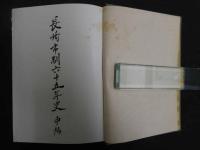 長崎市制六十五年史 中編